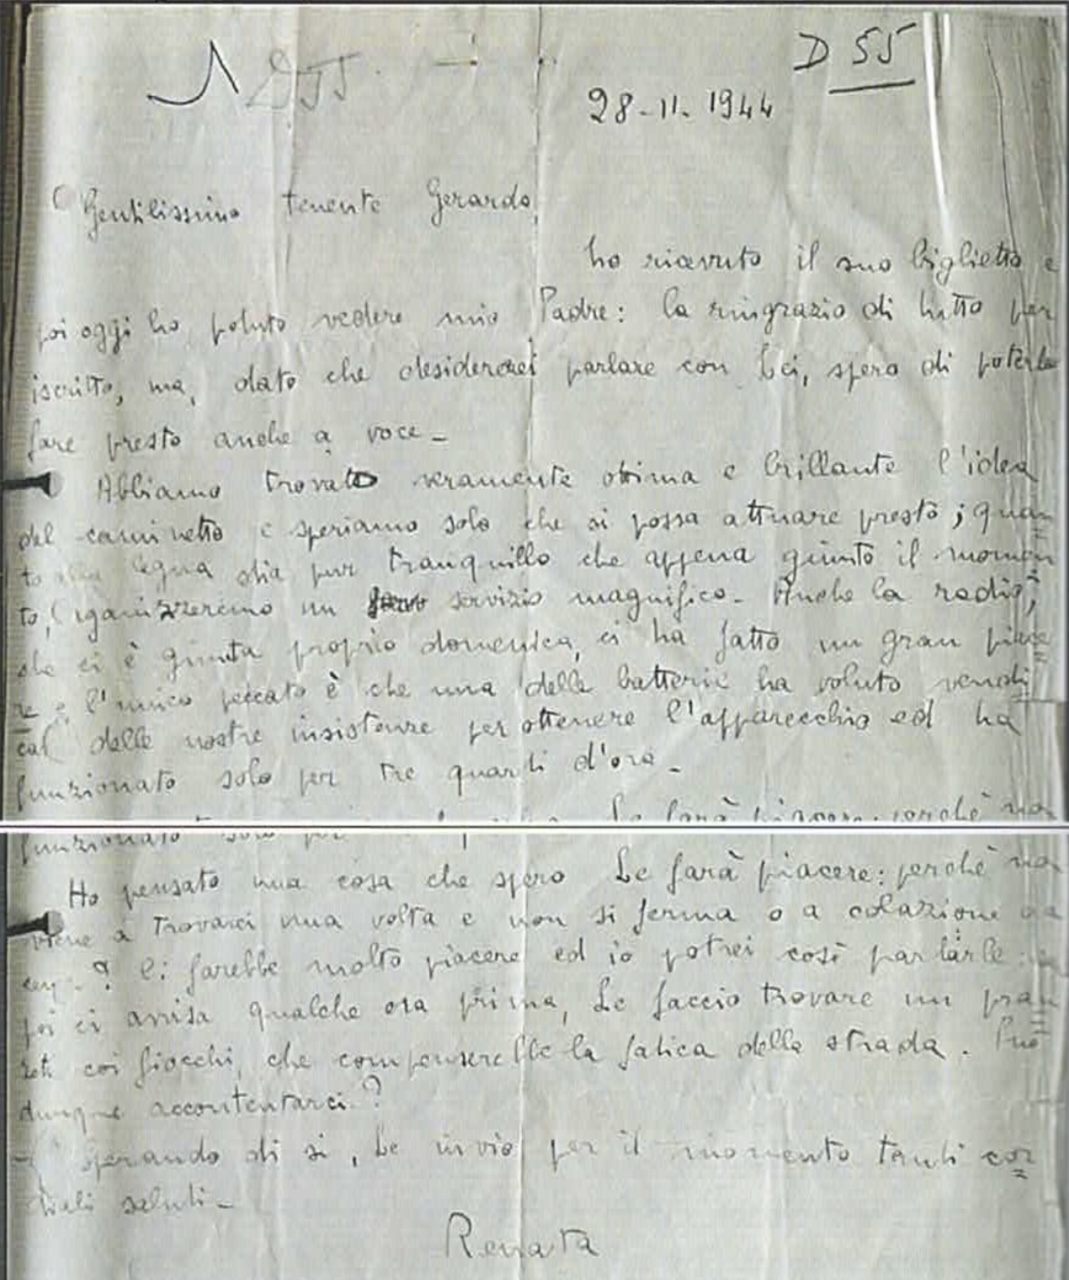 D 55
28-11-1944
Gentilissimo tenente Gerardo,
ho ricevuto il suo biglietto e
poi oggi ho potuto vedere mio Padre: la ringrazio di tutto per
iscritto, ma, dato che desidererei parlare con Lei, spero di poterlo
fare presto anche a voce-
Abbiamo trovato veramente ottima e brillante l'idea
del caminetto e speriamo solo che si possa attuare presto; quan
to alla legna stia pur tranquillo che appena giunto il momen
to, organizzeremo un servizio magnifico- Anche la radio,
che ci è giunta proprio domenica, ci ha fatto un gran piace
re e l'unico peccato è che una delle batterie ha voluto vendi
car delle nostre insistenze per ottenere l'apparecchio ed ha
funzionato solo per tre quarti d'ora-
Le farà piacere: perchè no
funzionato solo per
Ho pensato una cosa che spero Le farà piacere: perchè non
viene a trovarci una volta e non si ferma o a colazione o a
cena? Ci farebbe molto piacere ed io potrei così parlarle: se
poi ci avvisa qualche ora prima, Le faccio trovare un pran
zetto coi fiocchi, che compenserebbe la fatica della strada. Può
dunque accontentarci?
Sperando di si, Le invio per il momento tanti cor
diali saluti-
Renata